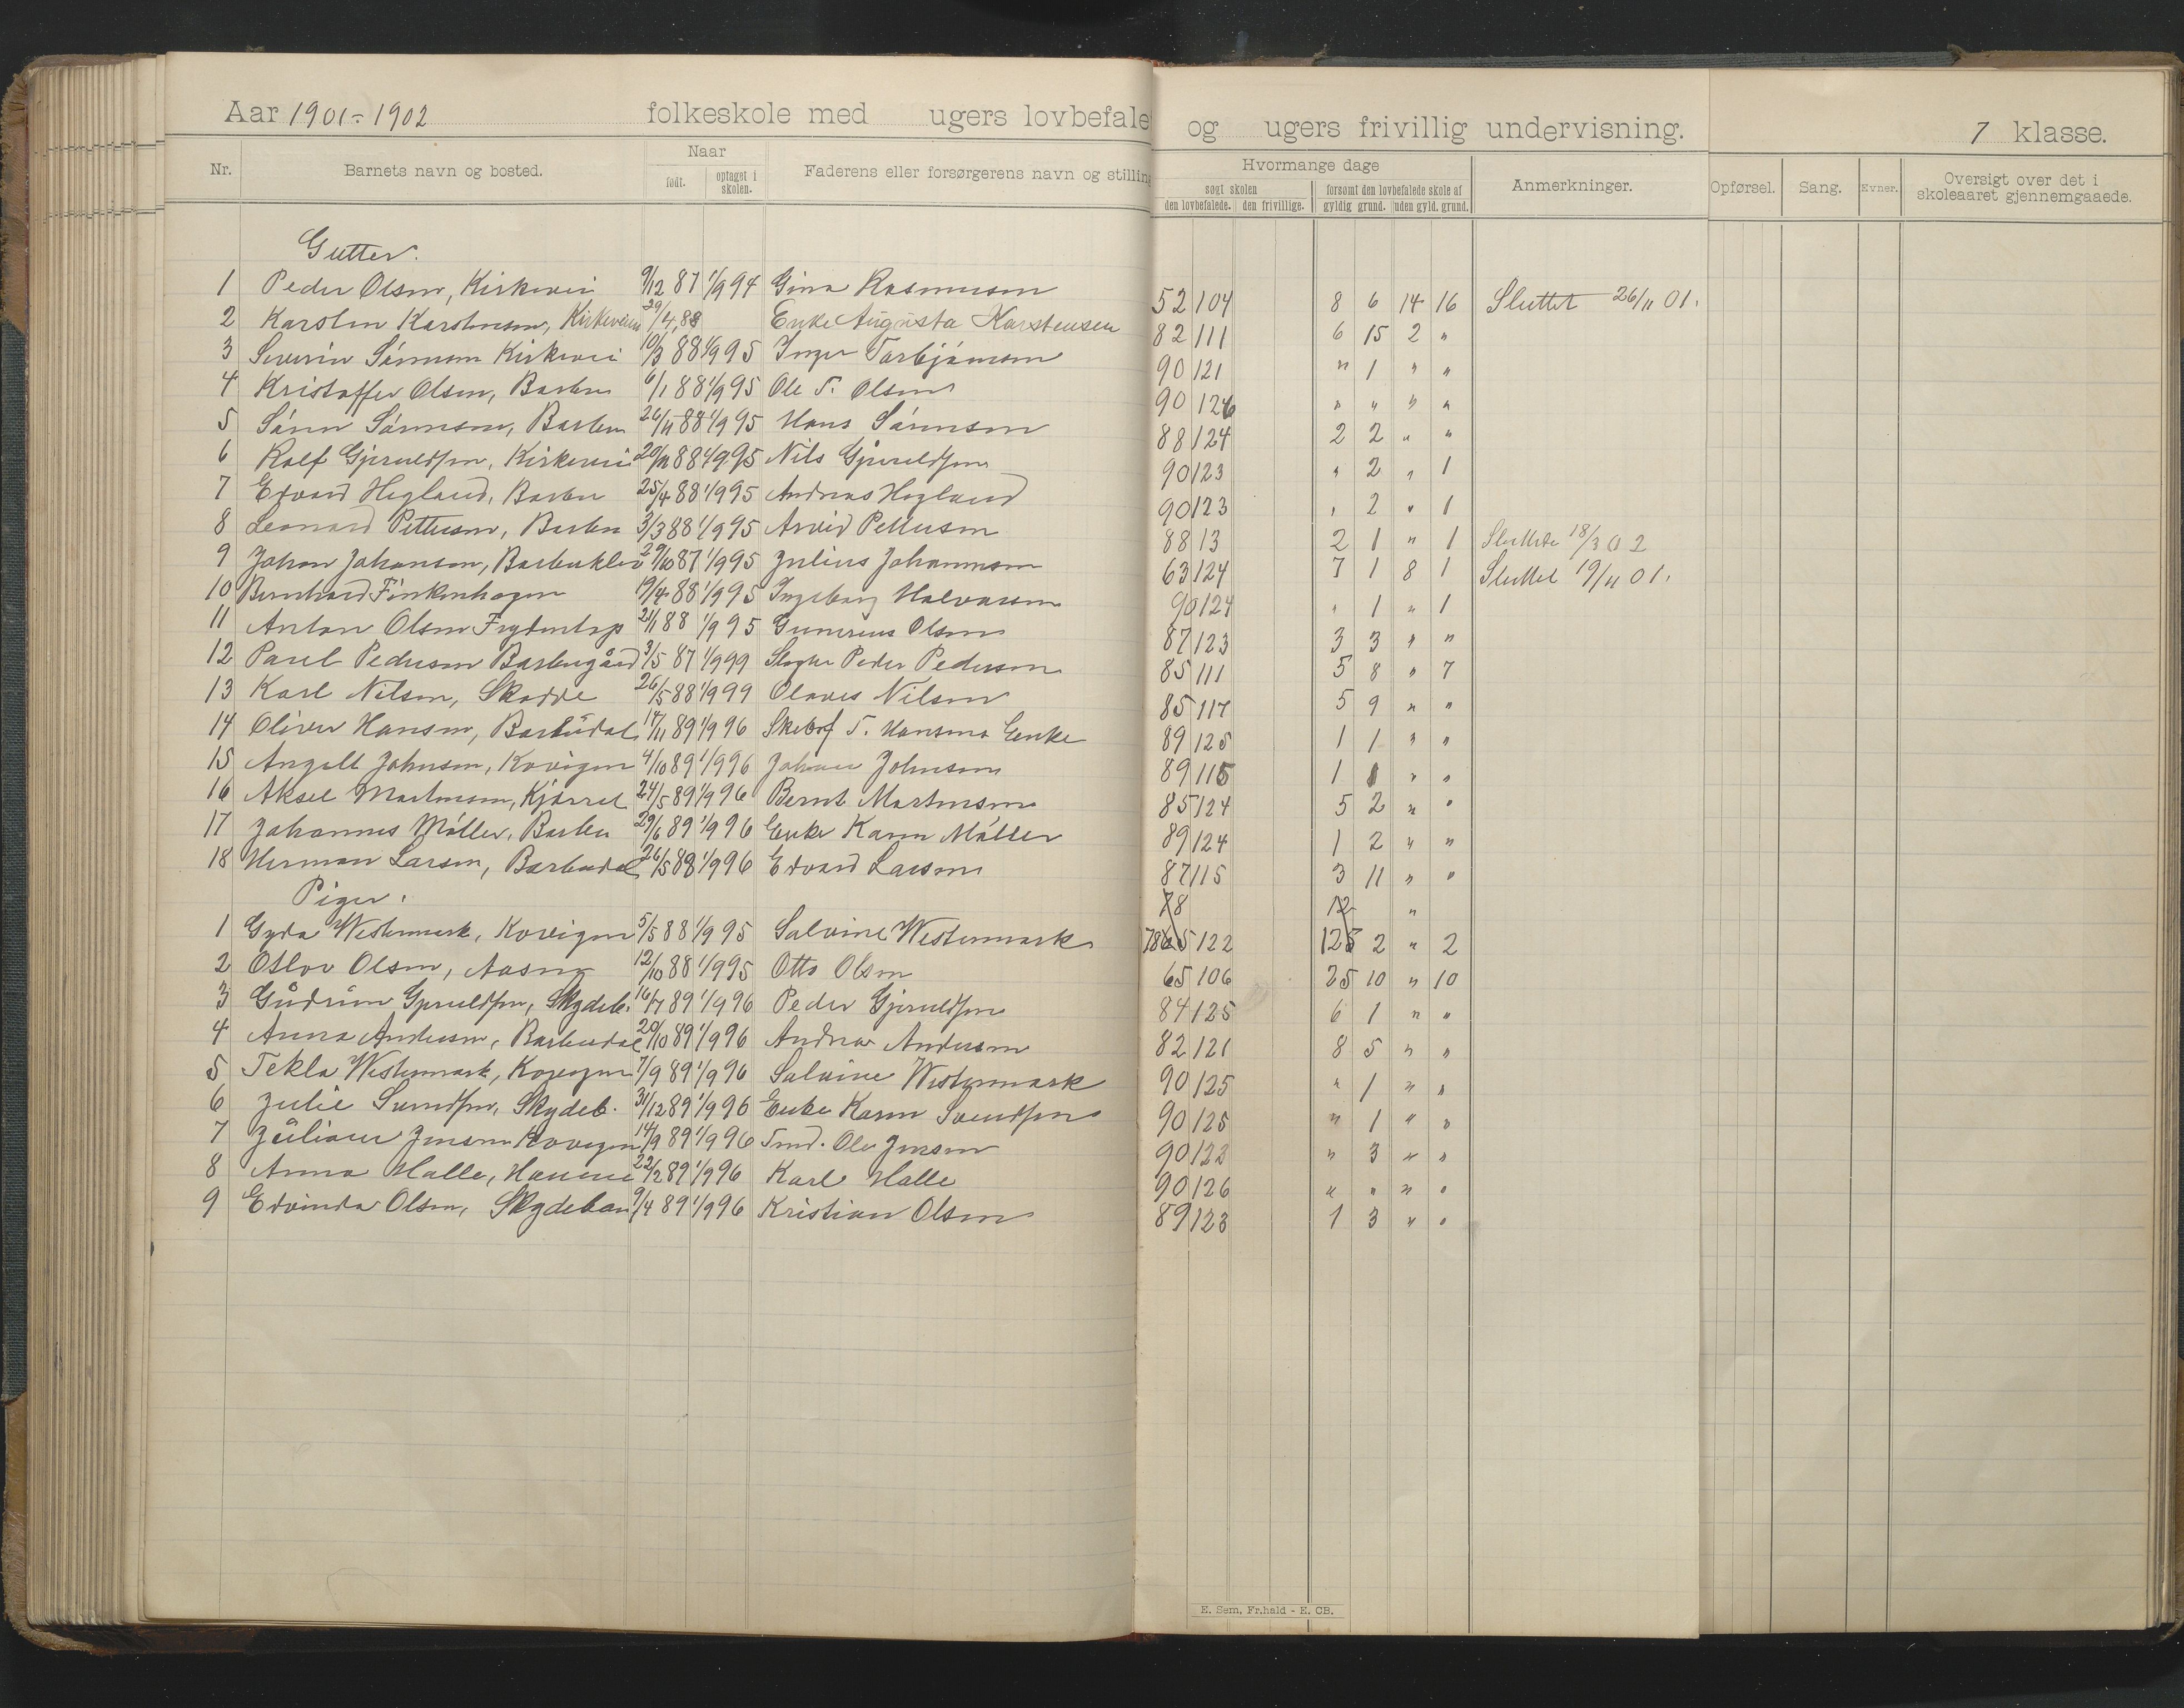 Aar 1901-1902 folkeskole med ugers lovbefalet og ugers frivillig undervisning. 7 klasse.
Nr. Barnets navn og bosted. Naar født. optaget i skolen. Faderens eller forsørgerens navn og stilling Hvormange dage søgt skolen den lovbefalede. den frivillige. forsømt den lovbefalede skole af gyldig grund. uden gyld. grund. Anmerkninger. Opførsel. Sang. Evner. Oversigt over det i skoleaaret gjennemgaaede.
Gutter.
1 Peder Olsen, Kirkevei 9/12 87 1/9 94 Gina Rasmussen 52 104 8 6 14 16 Sluttet 26/11 01.
2 Karsten Karstensen, Kirkeveien 29/4 88 Enke Augusta Karstensen 82 111 6 15 2 "
3 Severin Sörensen Kirkevei 10/3 88 1/9 95 Inger Torbjörnsen 90 121 " 1 " "
4 Kristoffer Olsen, Barbu 6/1 88 1/9 95 Ole T. Olsen 90 126 " " " "
5 Sören Sörensen, Barbu 26/11 88 1/9 95 Hans Sörensen 88 124 2 2 " "
6 Rolf Gjeruldsen, Kirkevei 88 1/9 95 Nils Gjeruldsen 90 123 " 2 " 1
7 Edvard Hegland, Barbu 25/4 88 1/9 95 Andreas Hegland 90 123 " 2 " 1
8 Leonard Pettersen, Barbu 3/3 88 1/9 95 Arvid Pettersen 88 13 2 1 " 1 Sluttede 18/3 02
9 Johan Johansen, Barbuklev 29/10 87 1/9 95 Julius Johannesen 63 124 7 1 8 1 Sluttet 19/11 01.
10 Bernhard Finkenhagen 19/4 88 1/9 95 Ingeborg Halvorsen 90 124 " 1 " 1
11 Anton Olsen 21/1 88 1/9 95 Gunerius Olsen 87 123 3 3 " "
12 Paul Pedersen Barbugård 3/5 87 1/9 99 Peder Pedersen 85 111 5 8 " 7
13 Karl Nilsen, 26/5 88 1/9 99 Olaves Nilsen 85 117 5 9 " "
14 Oliver Hansen, Barbudal 17/11 89 1/9 96 T. Hansens Enke 89 125 1 1 " "
15 Johnsen, Kovigen 4/10 89 1/9 96 Johnsen 89 115 1 " "
16 Aksel Martinsen, Kjörrel 24/5 89 1/9 96 Bernt Martinsen 85 124 5 2 " "
17 Johannes Möller, Barbu 29/6 89 1/9 96 Enke Karen Möller 89 124 1 2 " "
18 Herman Larsen, Barbudal 26/5 88 1/9 96 Edvard Larsen 87 115 3 11 " "
Piger. 78 12 "
1 Gyda Westermark, Kovigen 5/5 88 1/9 95 Salvine Westermark 78 122 12 2 " 2
2 Otlov Olsen, 12/10 88 1/9 95 Otto Olsen 65 106 25 10 " 10
3 Gudrun Gjeruldsen, Skydeb. 16/7 89 1/9 96 Peder Gjeruldsen 84 125 6 1 " "
4 Anna Andersen, Barbudal 20/10 89 1/9 96 Andreas Andersen 82 121 8 5 " "
5 Tekla Westermark, Kovigen 7/9 89 1/9 96 Salvine Westermark 90 125 " 1 " "
6 Julie Svendsen, Skydeb. 31/12 89 1/9 96 Enke Karen Svendsen 90 125 " 1 " "
7 Juliane Jensen Kovigen 14/9 89 1/9 96 Ole Jensen 90 123 " 3 " "
8 Anna Halle, 22/2 89 1/9 96 Karl Halle 90 126 " " " "
9 Edvinda Olsen, Skydeban 9/4 89 1/9 96 Kristian Olsen 89 123 1 3 " "
E. Sem, Fr.hald - E. CB.